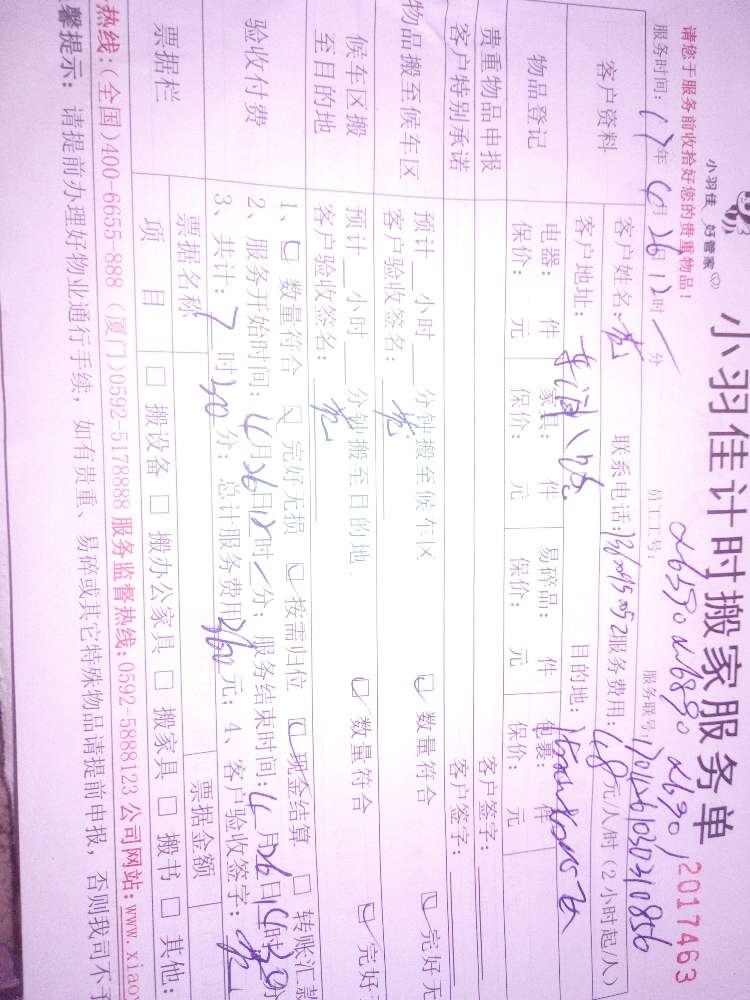 小羽佳 好管家
小羽佳计时搬家服务单
2017463
请您于服务前收拾好您的贵重物品!
员工工号:
服务联号:
服务时间: 17年4月26日12时 分
客户资料
客户姓名: 联系电话: 服务费用: 48元/人/时(2小时起/人)
客户地址: 目的地:
物品登记
电器: 件 家具: 件 易碎品: 件 包裹: 件
保价: 元 保价: 元 保价: 元 保价: 元
贵重物品申报 客户签字:
客户特别承诺 客户签字:
物品搬至候车区
预计__小时__分钟搬至候车区 数量符合 完好无
客户验收签名:
候车区搬至目的地
预计__小时__分钟搬至目的地 数量符合 完好
客户验收签名:
验收付费
1、 数量符合 完好无损 按需归位 现金结算 转账汇款
2、服务开始时间: 4月26日12时 分; 服务结束时间: 4月26日14时30分
3、共计: 7时30分; 总计服务费用360元; 4、客户验收签字:
票据栏
票据名称 票据金额
项目 □搬设备 □搬办公家具 □搬家具 □搬书 □其他:
热线:(全国)400-6655-888 (厦门)0592-5178888 服务监督热线:0592-5888123 公司网站:www.xiao
馨提示: 请提前办理好物业通行手续, 如有贵重、易碎或其它特殊物品请提前申报, 否则我司不